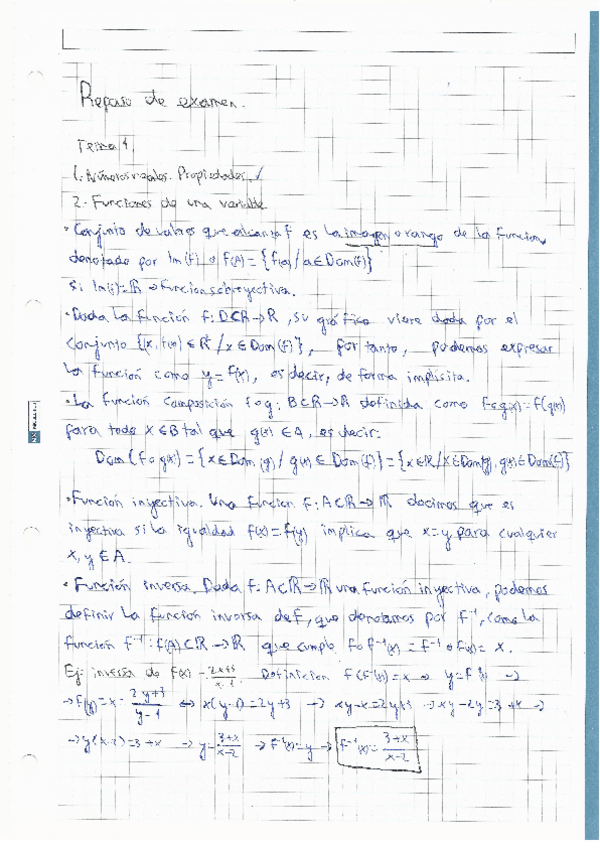 Repaso de examen.
Tema 1.
1. Números reales. Propiedades. ✓
2. Funciones de una variable
• Conjunto de valores que alcanza f es la imagen o rango de la función,
denotado por Im(f) o f(A) = {f(a) / a ∈ Dom(f)}
Si Im(f) = ℝ → función sobreyectiva.
• Dada la función f: D⊂ℝ → ℝ, su gráfica viene dada por el
conjunto {(x, f(x)) ∈ ℝ² / x ∈ Dom(f)}, por tanto, podemos expresar
la función como y = f(x), es decir, de forma implísita.
• La función composición f∘g: B⊂ℝ → ℝ definida como f∘g(x) = f(g(x))
para todo x ∈ B tal que g(x) ∈ A, es decir:
Dom(f∘g(x)) = {x ∈ Dom(g) / g(x) ∈ Dom(f)} = {x ∈ ℝ / x ∈ Dom(g), g(x) ∈ Dom(f)}
• Función inyectiva. Una función f: A⊂ℝ → ℝ decimos que es
inyectiva si la igualdad f(x) = f(y) implica que x = y para cualquier
x, y ∈ A.
• Función inversa. Dada f: A⊂ℝ → ℝ una función inyectiva, podemos
definir la función inversa de f, que denotamos por f⁻¹, como la
función f⁻¹: f(A)⊂ℝ → ℝ que cumple f∘f⁻¹(x) = f⁻¹∘f(x) = x.
Ej: inversa de f(x) = 2x+3/x-1. Definicion f(f⁻¹(x)) = x → y = f⁻¹(x) →
→ f(y) = x = 2y+3/y-1 ↔ x(y-1) = 2y+3 → xy-x = 2y+3 → xy-2y = 3+x →
→ y(x-2) = 3+x → y = 3+x/x-2 → f⁻¹(x) = y → f⁻¹(x) = 3+x/x-2